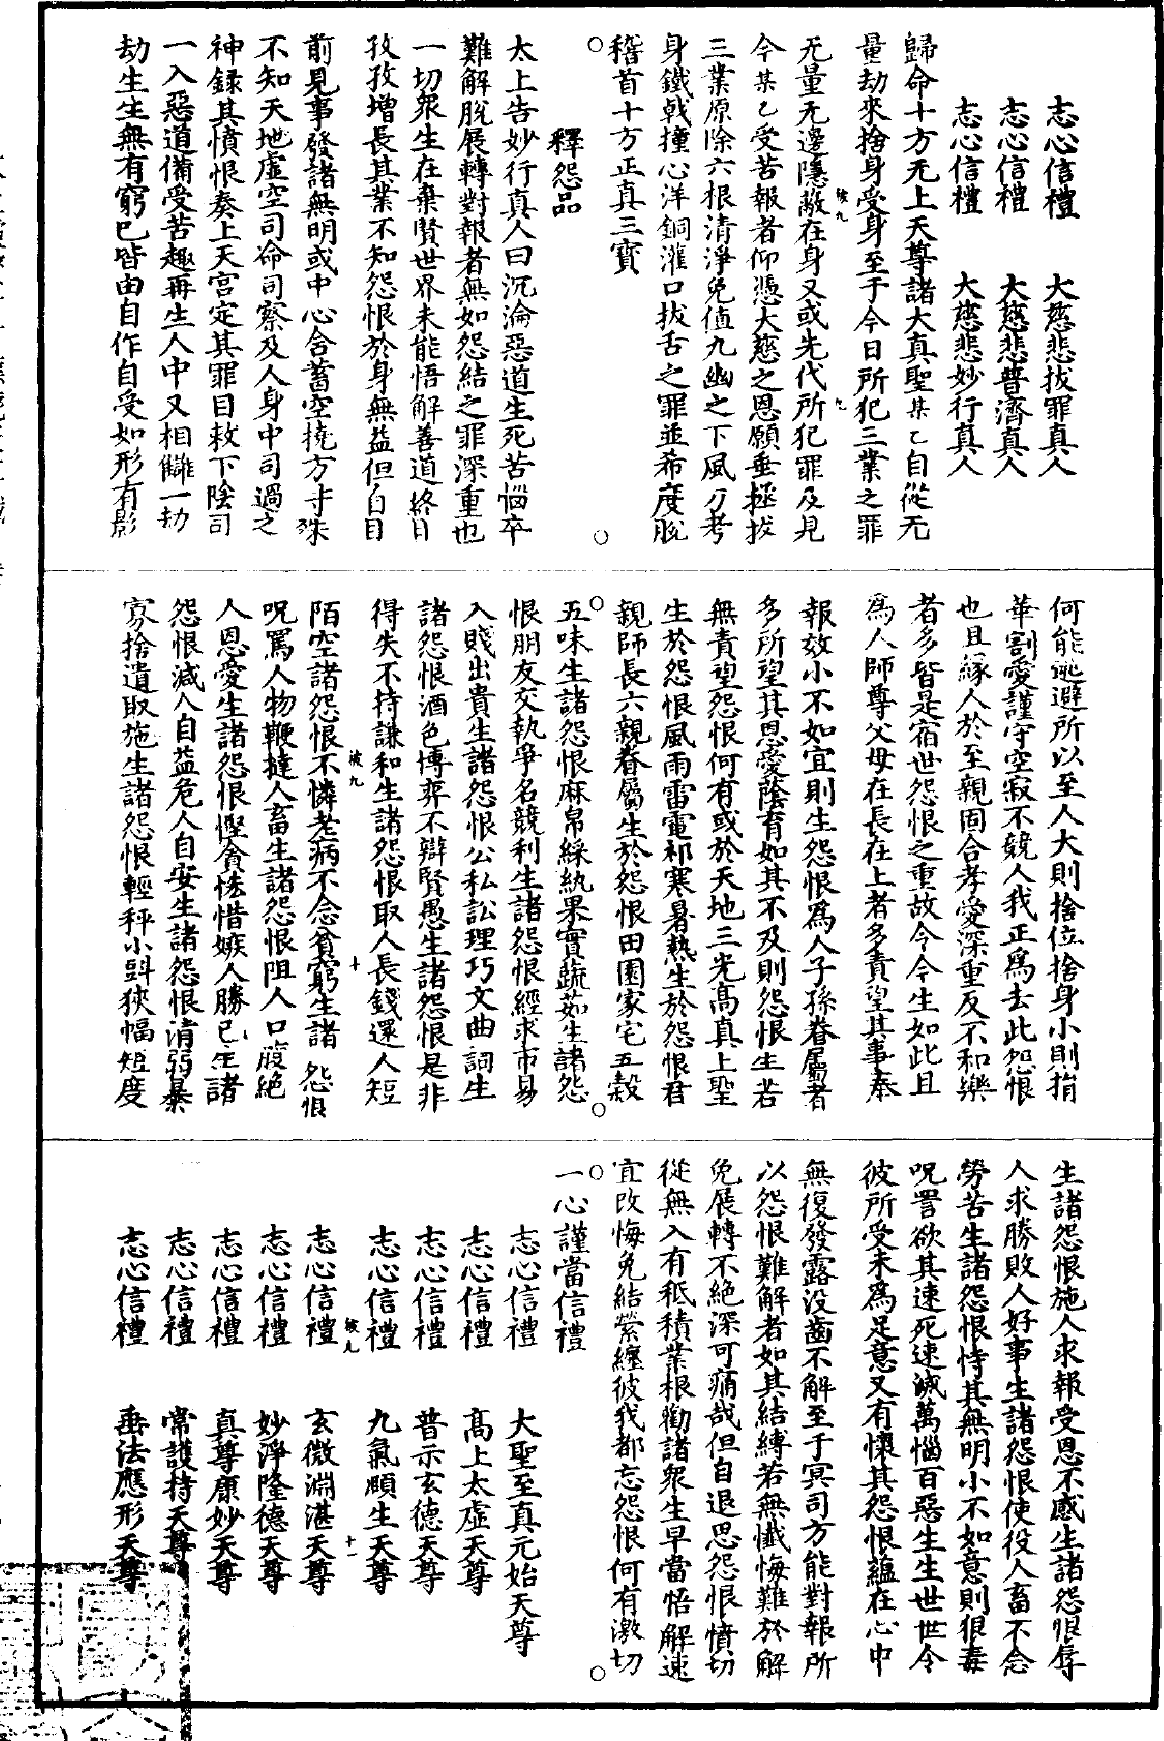 志心信禮　大慈悲拔罪真人
志心信禮　大慈悲普濟真人
志心信禮　大慈悲妙行真人
歸命十方无上天尊諸大真聖某乙自從无
量劫來捨身受身至于今日所犯三業之罪
无量无邊隱敝在身又或先代所犯罪及見
今某乙受苦報者仰憑大慈之恩願垂拯拔
三業原除六根清淨免值九幽之下風刀考
身鐵戟撞心洋銅灌口拔舌之罪並希度脫
稽首十方正真三寶
釋怨品
太上告妙行真人曰沉淪惡道生死苦惱卒
難解脫展轉對報者無如怨結之罪深重也
一切衆生在棄賢世界未能悟解善道終日
孜孜增長其業不知怨恨於身無益但自目
前見事發諸無明或中心含蓄空撓方寸殊
不知天地虛空司命司察及人身中司過之
神録其憤恨奏上天宫定其罪目敕下陰司
一入惡道備受苦趣再生人中又相讎一劫
劫生生無有窮巳皆由自作自受如形有影
何能逃避所以至人大則捨位捨身小則捐
華割愛謹守空寂不競人我正爲去此怨恨
也且緣人於至親固合孝愛深重反不和樂
者多皆是宿世怨恨之重故令今生如此且
爲人師尊父母在長在上者多責望其事奉
報效小不如宜則生怨恨爲人子孫眷屬者
多所望其恩愛蔭育如其不及則怨恨生若
無責望怨恨何有或於天地三光高真上聖
生於怨恨風雨雷電祁寒暑熱生於怨恨君
親師長六親眷屬生於怨恨田園家宅五穀
五味生諸怨恨麻帛綵紈果實蔬茹生諸怨
恨朋友交執爭名競利生諸怨恨經求市易
入賤出貴生諸怨恨公私訟理巧文曲詞生
諸怨恨酒色博弈不辯賢愚生諸怨恨是非
得失不持謙和生諸怨恨取人長錢還人短
陌空諸怨恨不憐老病不念貧窮生諸怨恨
呪罵人物鞭撻人畜生諸怨恨阻人口腹絶
人恩愛生諸怨恨慳貪悋惜嫉人勝已生諸
怨恨減人自益危人自安生諸怨恨清弱暴
寡捨遺取施生諸怨恨輕秤小斗狹幅短度
生諸怨恨施人求報受恩不感生諸怨恨辱
人求勝敗人好事生諸怨恨使役人畜不念
勞苦生諸怨恨恃其無明小不如意則狠毒
呪詈欲其速死速滅萬惱百惡生生世世令
彼所受未爲足意又有懷其怨恨蘊在心中
無復發露没齒不解至于冥司方能對報所
以怨恨難解者如其結縛若無懺悔難於解
免展轉不絶深可痛哉但自退思怨恨憤切
從無入有秪積業根勸諸衆生早當悟解速
宜改悔免結縈纏彼我都忘怨恨何有激切
一心謹當信禮
志心信禮　大聖至真元始天尊
志心信禮　高上太虛天尊
志心信禮　普示玄德天尊
志心信禮　九氣頤生天尊
志心信禮　玄微淵湛天尊
志心信禮　妙淨隆德天尊
志心信禮　真尊願妙天尊
志心信禮　常護持天尊
志心信禮　垂法應形天尊